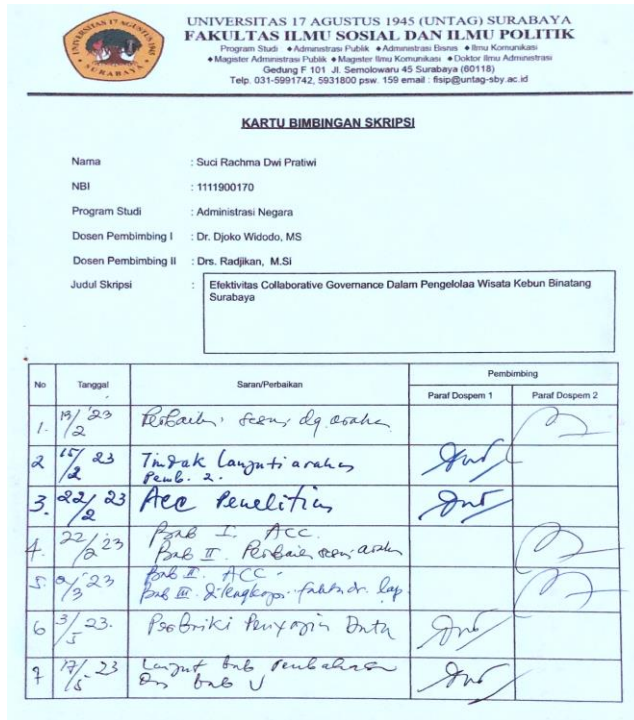 UNIVERSITAS 17 AGUSTUS 1945 (UNTAG) SURABAYA
FAKULTAS ILMU SOSIAL DAN ILMU POLITIK
Program Studi ♦Administrasi Publik ♦Administrasi Bisnis ♦Ilmu Komunikasi
♦Magister Administrasi Publik ♦Magister Ilmu Komunikasi ♦Doktor Ilmu Administrasi
Gedung F 101 Jl. Semolowaru 45 Surabaya (60118)
Telp. 031-5991742, 5931800 psw. 159 email : fisip@untag-sby.ac.id
KARTU BIMBINGAN SKRIPSI
Nama : Suci Rachma Dwi Pratiwi
NBI : 1111900170
Program Studi : Administrasi Negara
Dosen Pembimbing I : Dr. Djoko Widodo, MS
Dosen Pembimbing II : Drs. Radjikan, M.Si
Judul Skripsi : Efektivitas Collaborative Governance Dalam Pengelolaa Wisata Kebun Binatang
Surabaya
No Tanggal Saran/Perbaikan Pembimbing
Paraf Dospem 1 Paraf Dospem 2
1. /2 '23 Perbaiki sesuai dg arahan
2 15/2 23 Tindak lanjuti arahan
Pemb. 2.
3. 22/2 23 Acc Penelitian
4. 22/2 '23 Bab I. ACC.
Bab II. Perbaiki sesuai arahan
5. /3 '23 Bab II. ACC.
Bab III. dilengkapi lap.
6 3/5 23. Penyajian Data
7 17/5 23 Lanjut bab Pembahasan
bab V